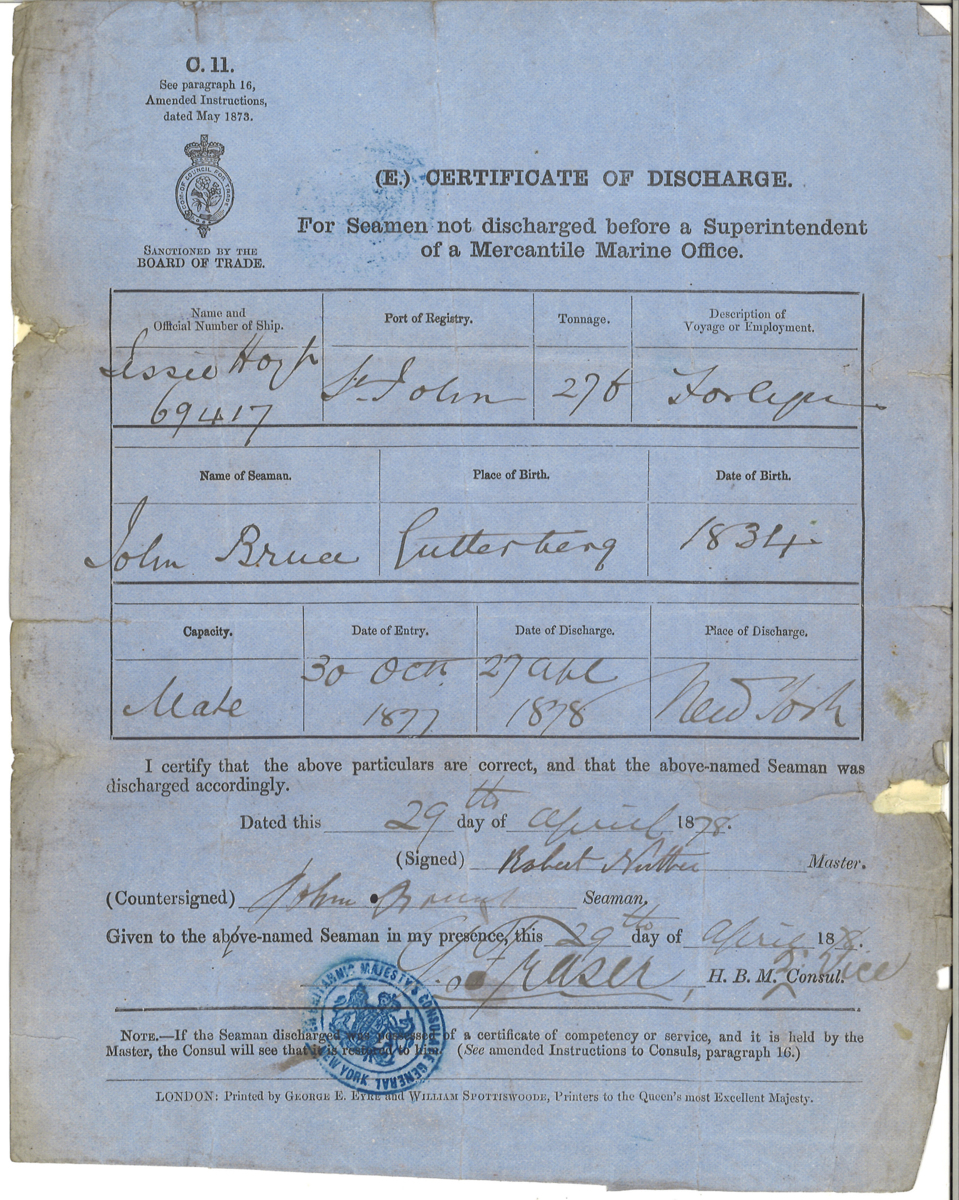 C. 11.
See paragraph 16,
Amended Instructions,
dated May 1873.
SANCTIONED BY THE
BOARD OF TRADE.
(E.) CERTIFICATE OF DISCHARGE.
For Seamen not discharged before a Superintendent
of a Mercantile Marine Office.
Name and
Official Number of Ship.
Port of Registry.
Tonnage.
Description of
Voyage or Employment.
69417
St. John
276
Foreign
Name of Seaman.
Place of Birth.
Date of Birth.
John Bruce
Gutterberg
1834
Capacity.
Date of Entry.
Date of Discharge.
Place of Discharge.
Mate
30 Octr
1877
27 Apl
1878
New York
I certify that the above particulars are correct, and that the above-named Seaman was
discharged accordingly.
Dated this 29th day of April 1878.
(Signed) Robert Master.
(Countersigned) John Seaman.
Given to the above-named Seaman in my presence, this 29th day of April 1878.
Fraser, H. B. M. Vice Consul.
BRITANNIC MAJESTY'S CONSULATE GENERAL
NEW YORK
NOTE.—If the Seaman discharged was possessed of a certificate of competency or service, and it is held by the
Master, the Consul will see that it is restored to him. (See amended Instructions to Consuls, paragraph 16.)
LONDON: Printed by GEORGE E. EYRE and WILLIAM SPOTTISWOODE, Printers to the Queen's most Excellent Majesty.